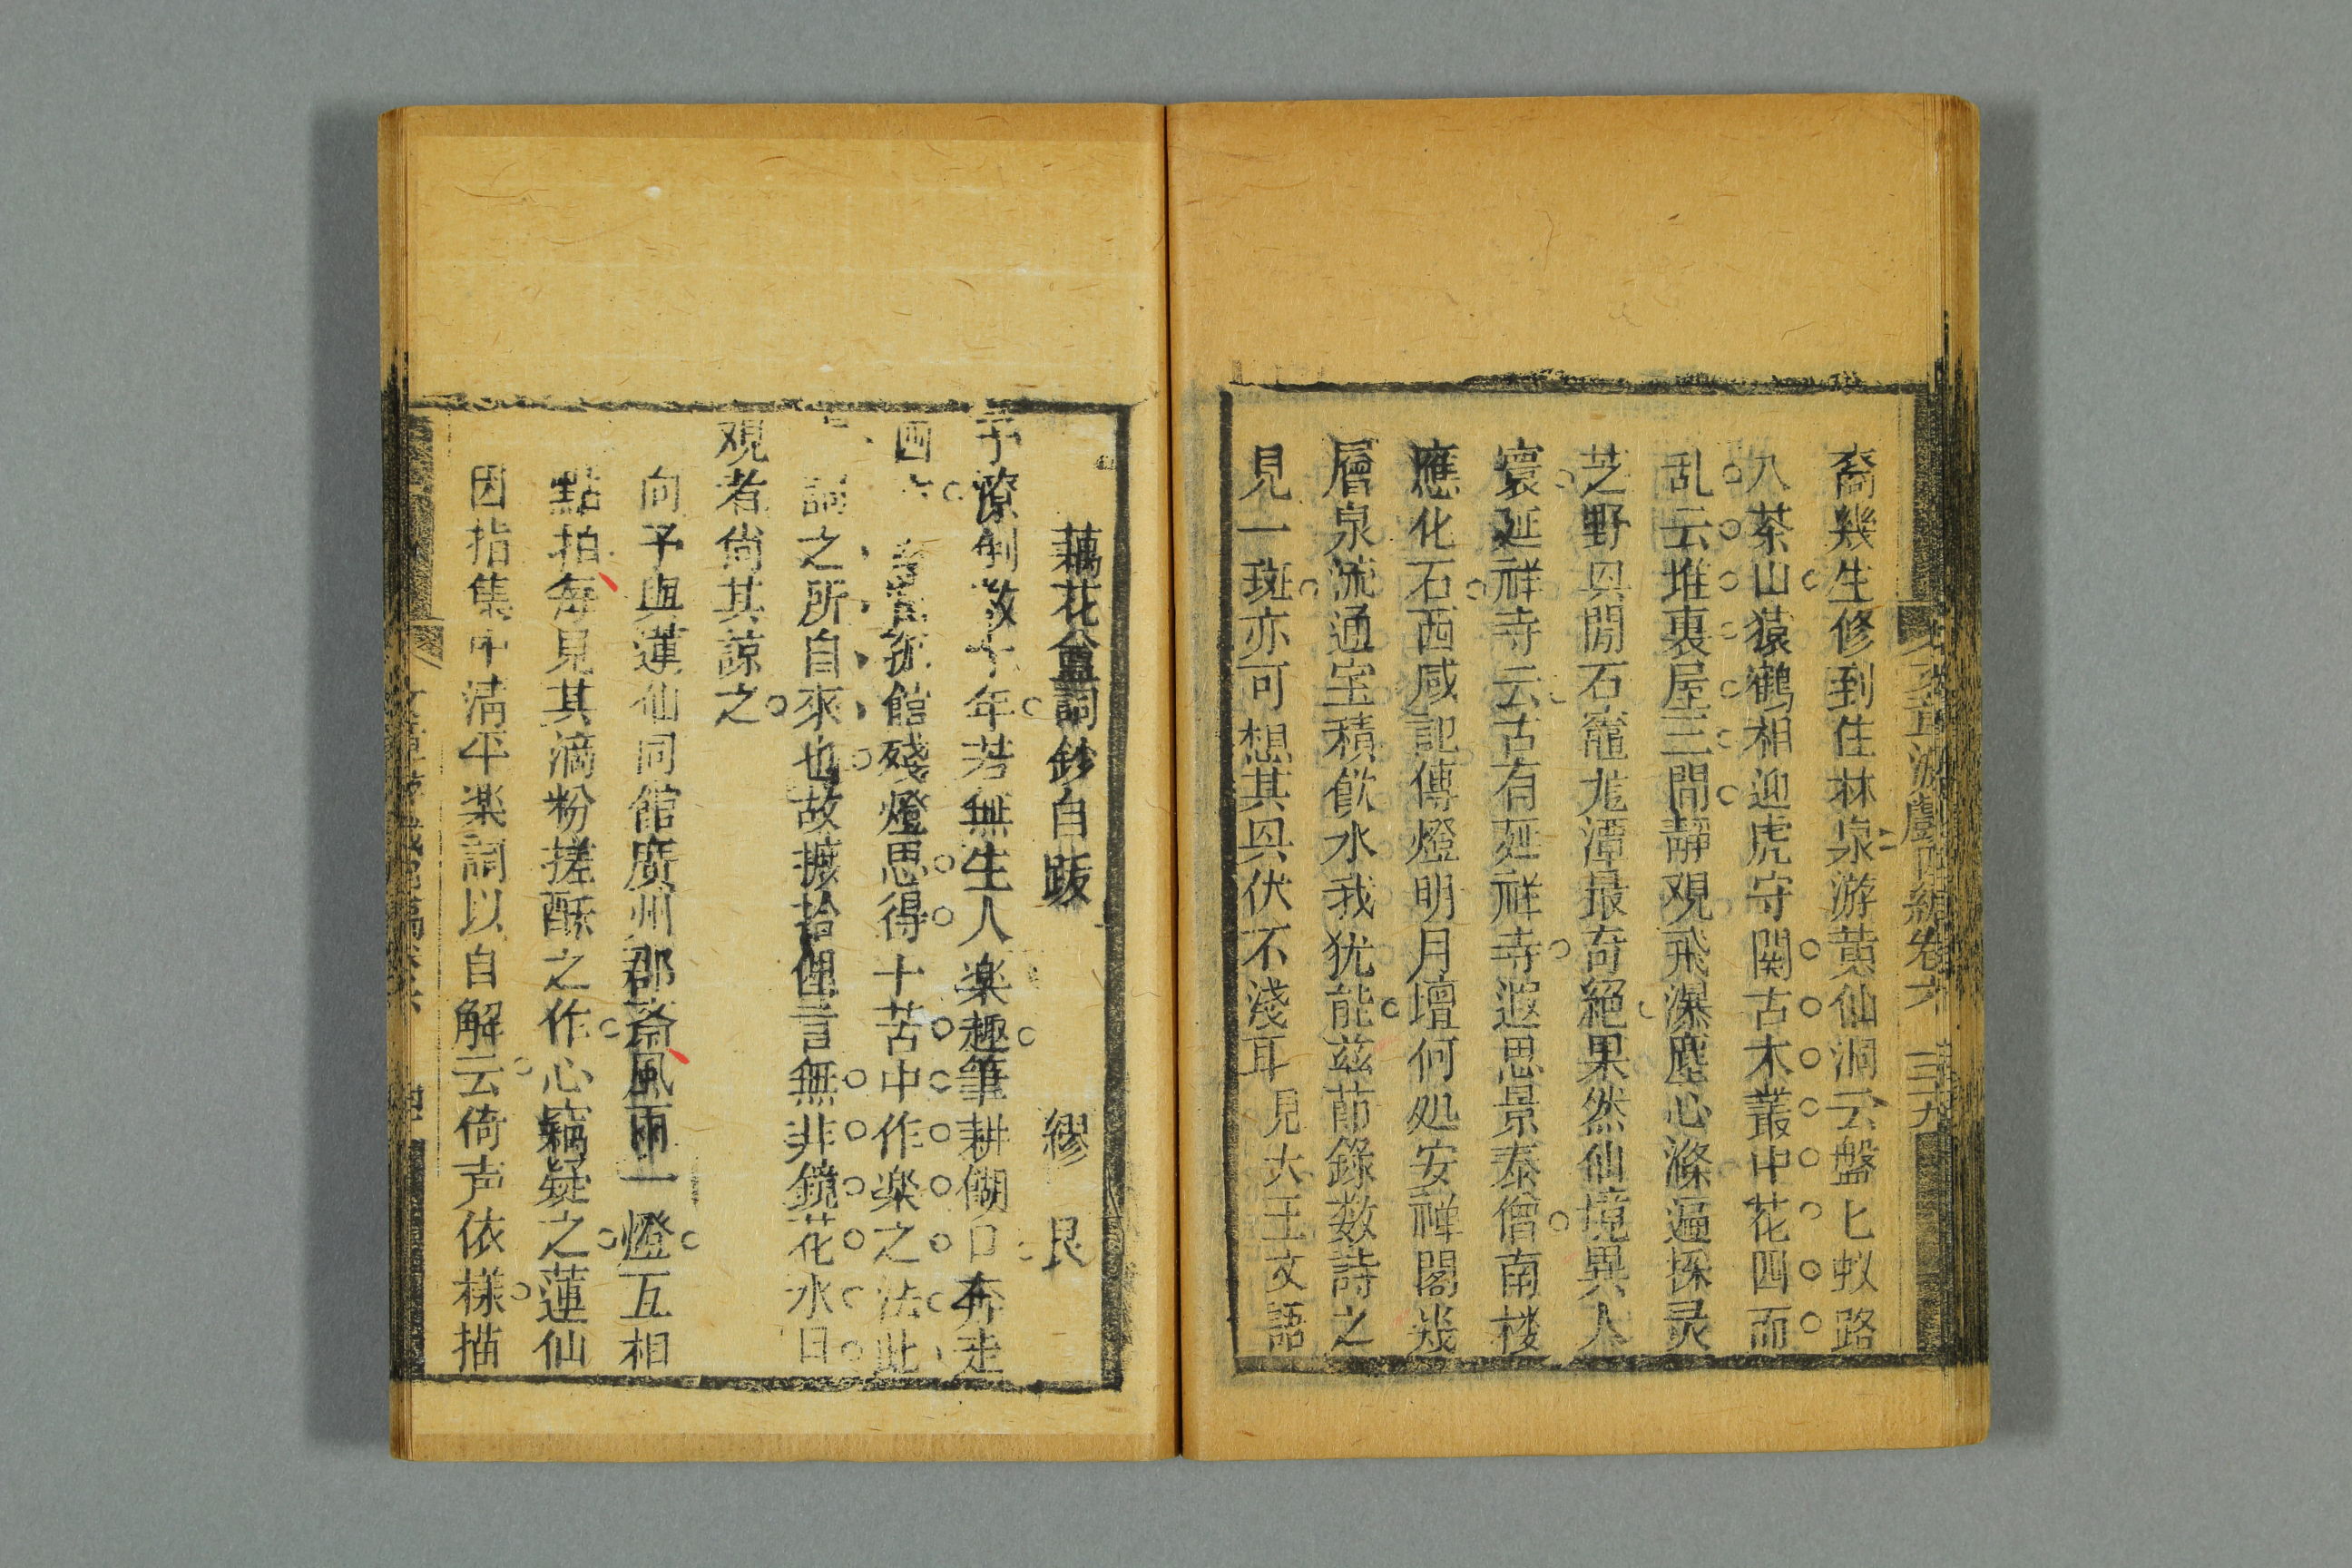 裔幾生修到住林泉游黄仙洞云盤匕蚁路
八茶山猿鶴相迎虎守関古木叢中花四面
乱云堆裏屋三間静观飛瀑塵心滌遍探灵
芝野具閒石竈尨潭最奇絕果然仙境異人
寰延祥寺云古有延祥寺遐思景泰僧南楼
應化石西咸記傳燈明月壇何処安禅閣幾
層泉流通宝積飲水我犹能兹莭錄数詩之
見一斑亦可想其具伏不淺耳見大王文語
三九
藕花盦詞鈔自跋 繆艮
予潦倒数十年若無生人楽趣筆耕餬口奔走
四 舘殘燈思得十苦中作楽之法此
詞之所自來也故摭拾俚言無非鏡花水日
观者倘其諒之
向予與蓮仙同館廣州郡斎風雨一燈互相
點拍毎見其滴粉搓酥之作心竊疑之蓮仙
因指集中淸平楽詞以自解云倚声依様描